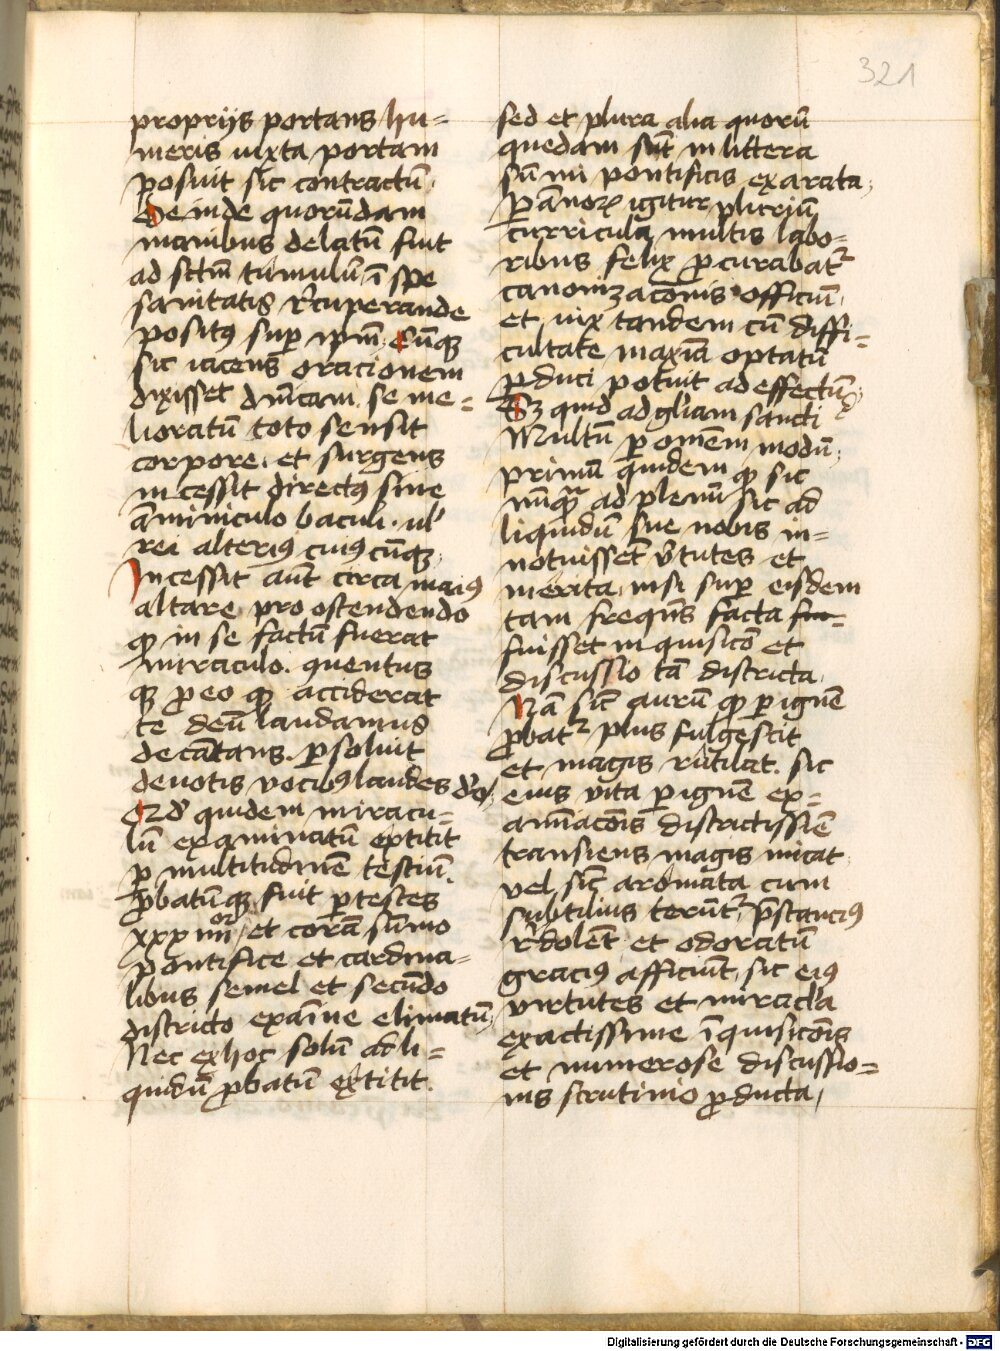 321
proprijs portans hu=
meris iuxta portam
posuit sic contractū.
Deinde quorūdam
manibus delatū fuit
ad sctm̄ tūmulū ī spe
sanitatis r̉cuperande
positꝰ suꝑ ip̄m. Cūqꝫ
sic iacens oracionem
dixisset dnīcam. se me=
lioratū toto sensit
corpore. et surgens
incessit directꝰ sine
āminiculo baculi. ul̉
rei alteriꝰ cuiꝰcūqꝫ.
Incessit aūt circa maiꝰ
altare pro ostendendo
qͦ in se factū fuerat
miraculo. quentus
qꝫ ꝓ eo qͦ acciderat
te deū laudamus
decātans. ꝑsoluit
deuotis vocibꝰ laudes d̉o.
Qd̉ quidem miracu=
lū examinatū extitit
ꝑ multitudinē testiū.
ꝓbatūqꝫ fuit ꝑ testes
xxxiiiiᵒʳ. et corā sūmo
pontifice et cardina=
libus semel et secūdo
districto exaīne elimatū.
Nec ex hoc solū ad li=
quidū ꝓbatū extitit.
sed et plura alia quorū
quedam sūt in littera
sūmi pontificis exarata.
ꝑ ānoꝝ igitur pluriū
curricula multis labo=
ribus felix ꝓcurabat᷑
canonizacōnis officiū.
et uix tandem cū diffi=
cultate maxīa optatū
ꝑduci potuit ad effectū.
Sꝫ quid ad gl̄iam sancti
Multū ꝑ omēm modū.
primū quidem qͦ sic
nūqᷓ ad plenū sic ad
liquidū sue nobis in=
notuissēt v̉tutes et
merita. nisi suꝑ eisdem
tam freqūs facta fu=
fuisset inquisicō et
discussio tā districta.
Nā sic̄ aurū qͦ ꝑ ignē
ꝓbat᷑ plus fulgescit
et magis rutilat. sic
eius vita ꝑ ignē ex=
amīacōis districtissiē
transiens magis micat
vel sic̄ aromata cum
subtilius terūt᷑. p̄stanciꝰ
r̉dolēt et odoratū
graciꝰ afficiūt. sic eiꝰ
virtutes et miracl̄a
exactissime īquisicōis
et numerose discussio=
nis scrutinio ꝓducta.
Digitalisierung gefördert durch die Deutsche Forschungsgemeinschaft - DFG